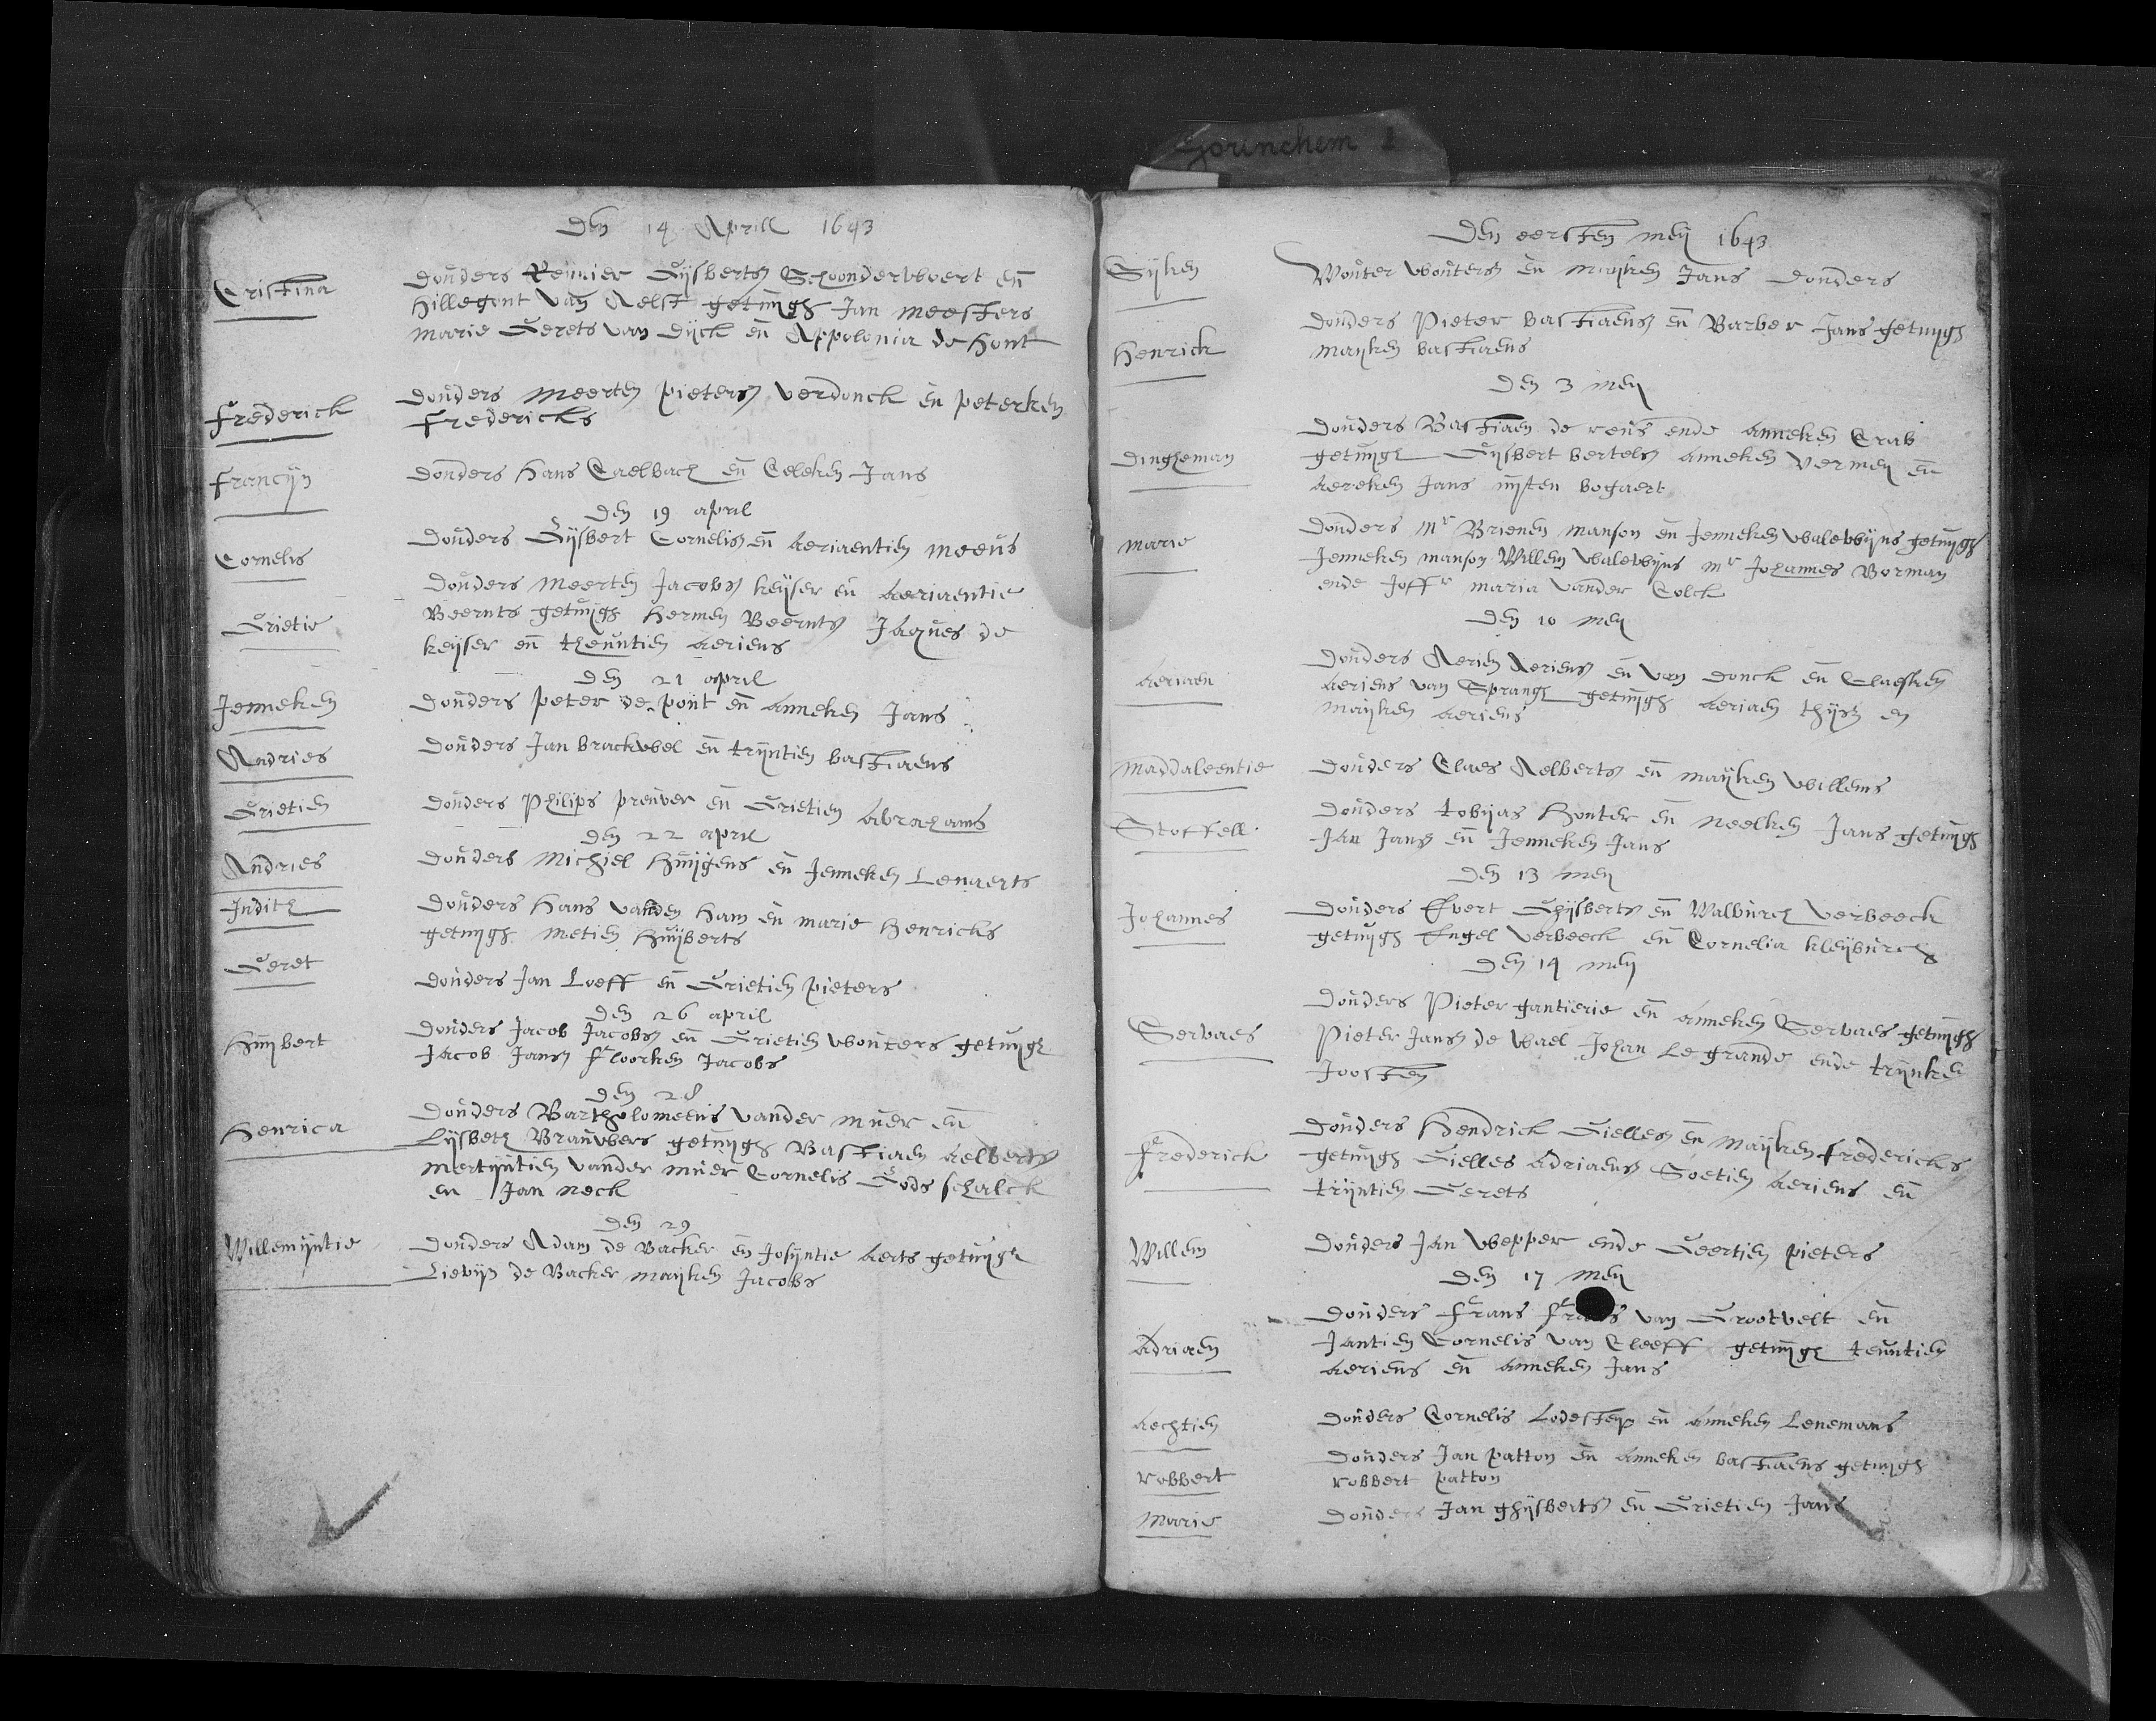 Gorinchem 1
Den 14 Aprill 1643
Cristina
douders Reinier Gijsberts Schoonderwoert en
Hillegont van Aelst getuijgh Jan Meesters
Marie Gerets van Dijck en Appolonia de Hont
Frederick
douders Meerten pieters verdonck en peterken
Fredericks
Francijn
douders Hans Caelbach en Celeken Jans
Den 19 april
Cornelis
douders Gijsbert Cornelis en Aeriaentien Moeus
Grietie
douders Meerten Jacobs keijser en Aeriaentie
Beernts getuijgh Hermen Beernts Jaques de
keijser en theuntien Aeriens
Den 21 april
Jenneken
douders peter de pont en Anneken Jans
Andries
douders Jan brackwel en trijntien bastiaens
Grietien
douders Philips preuver en Grietien Abrahams
Den 22 april
Andries
douders Michiel Huijgens en Jenneken Lenaerts
Judith
douders Hans vanden Ham en Marie Henricks
getuijgh Metien Huijberts
Geret
douders Jan Loeff en Grietien pieters
Den 26 april
Huijbert
douders Jacob Jacobs en Grietien wouters getuijgh
Jacob Jans Floorken Jacobs
Den 28
Henrica
douders Bartholomeeus vander Muer en
Lijsbeth Brauwers getuijgh Bastiaen Aelberts
Mertijntien vander Muer Cornelis Godschalck
en Jan Neck
Den 29
Willemijntie
douders Adam de Backer en Josijntie Aerts getuijgh
Lievijn de Backer Maijken Jacobs
Den eersten Meij 1643
Sijken
Wouter wouters en Maijken Jans douders
Henrick
douders Pieter bastiaens en Barber Jans getuijgh
Maijken bastiaens
Den 3 Meij
Dingheman
douders Bastiaen de reus ende Anneken Crab
getuijgh Gijsbert bertels Anneken vermeij en
Aereken Jans uijten bogaert
Marie
douders Mr Brienen Manson en Jenneken walewijns getuijgh
Jenneken Manson Willem walewijns Mr Johannes Borman
ende Joffr Maria vander Colck
Den 10 Meij
Aeriaen
douders Aerien Aeriens en van donck en Claesken
Aeriens van Sprangh getuijgh Aeriaen thijs en
Maijken Aeriens
Maddaleentie
douders Claes Aelberts en Maijken willems
Stoffell
douders tobijas Honter en Neelken Jans getuijgh
Jan Jans en Jenneken Jans
Den 13 Meij
Johannes
douders Evert Ghijsberts en Walburch verbeeck
getuijgh Engel verbeeck en Cornelia kleijburch
Den 14 Meij
Servaes
douders Pieter gantierie en Anneken Servaes getuijgh
Pieter Jans de wael Johan le grande ende trijnken
Joosten
Frederick
douders Hendrick Gielles en Maijken fredericks
getuijgh Gielles Adriaens Soetien Aeriens en
trijntien Gerets
Willem
douders Jan wepper ende Geertien pieters
Den 17 Meij
Adriaen
douders Frans Frans van Grootvelt en
Jantien Cornelis van Cleeff getuijgh teuntien
Aeriens en Anneken Jans
Aechtien
douders Cornelis Lodesteijn en Anneken Lenemans
Robbert
douders Jan patton en Anneken bastiaens getuijgh
robbert patton
Marie
douders Jan ghijsberts en Grietien Jans